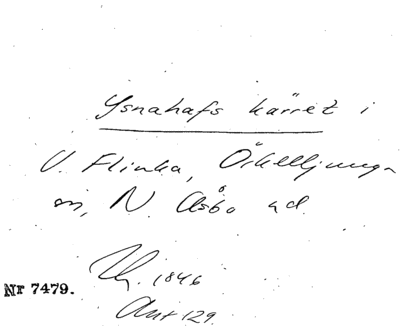 Ysnahafs kärret i
V. Flinka, Örkelljunga
sn, N. Åsbo hd.
1846
Nr 7479.
Ant 129.